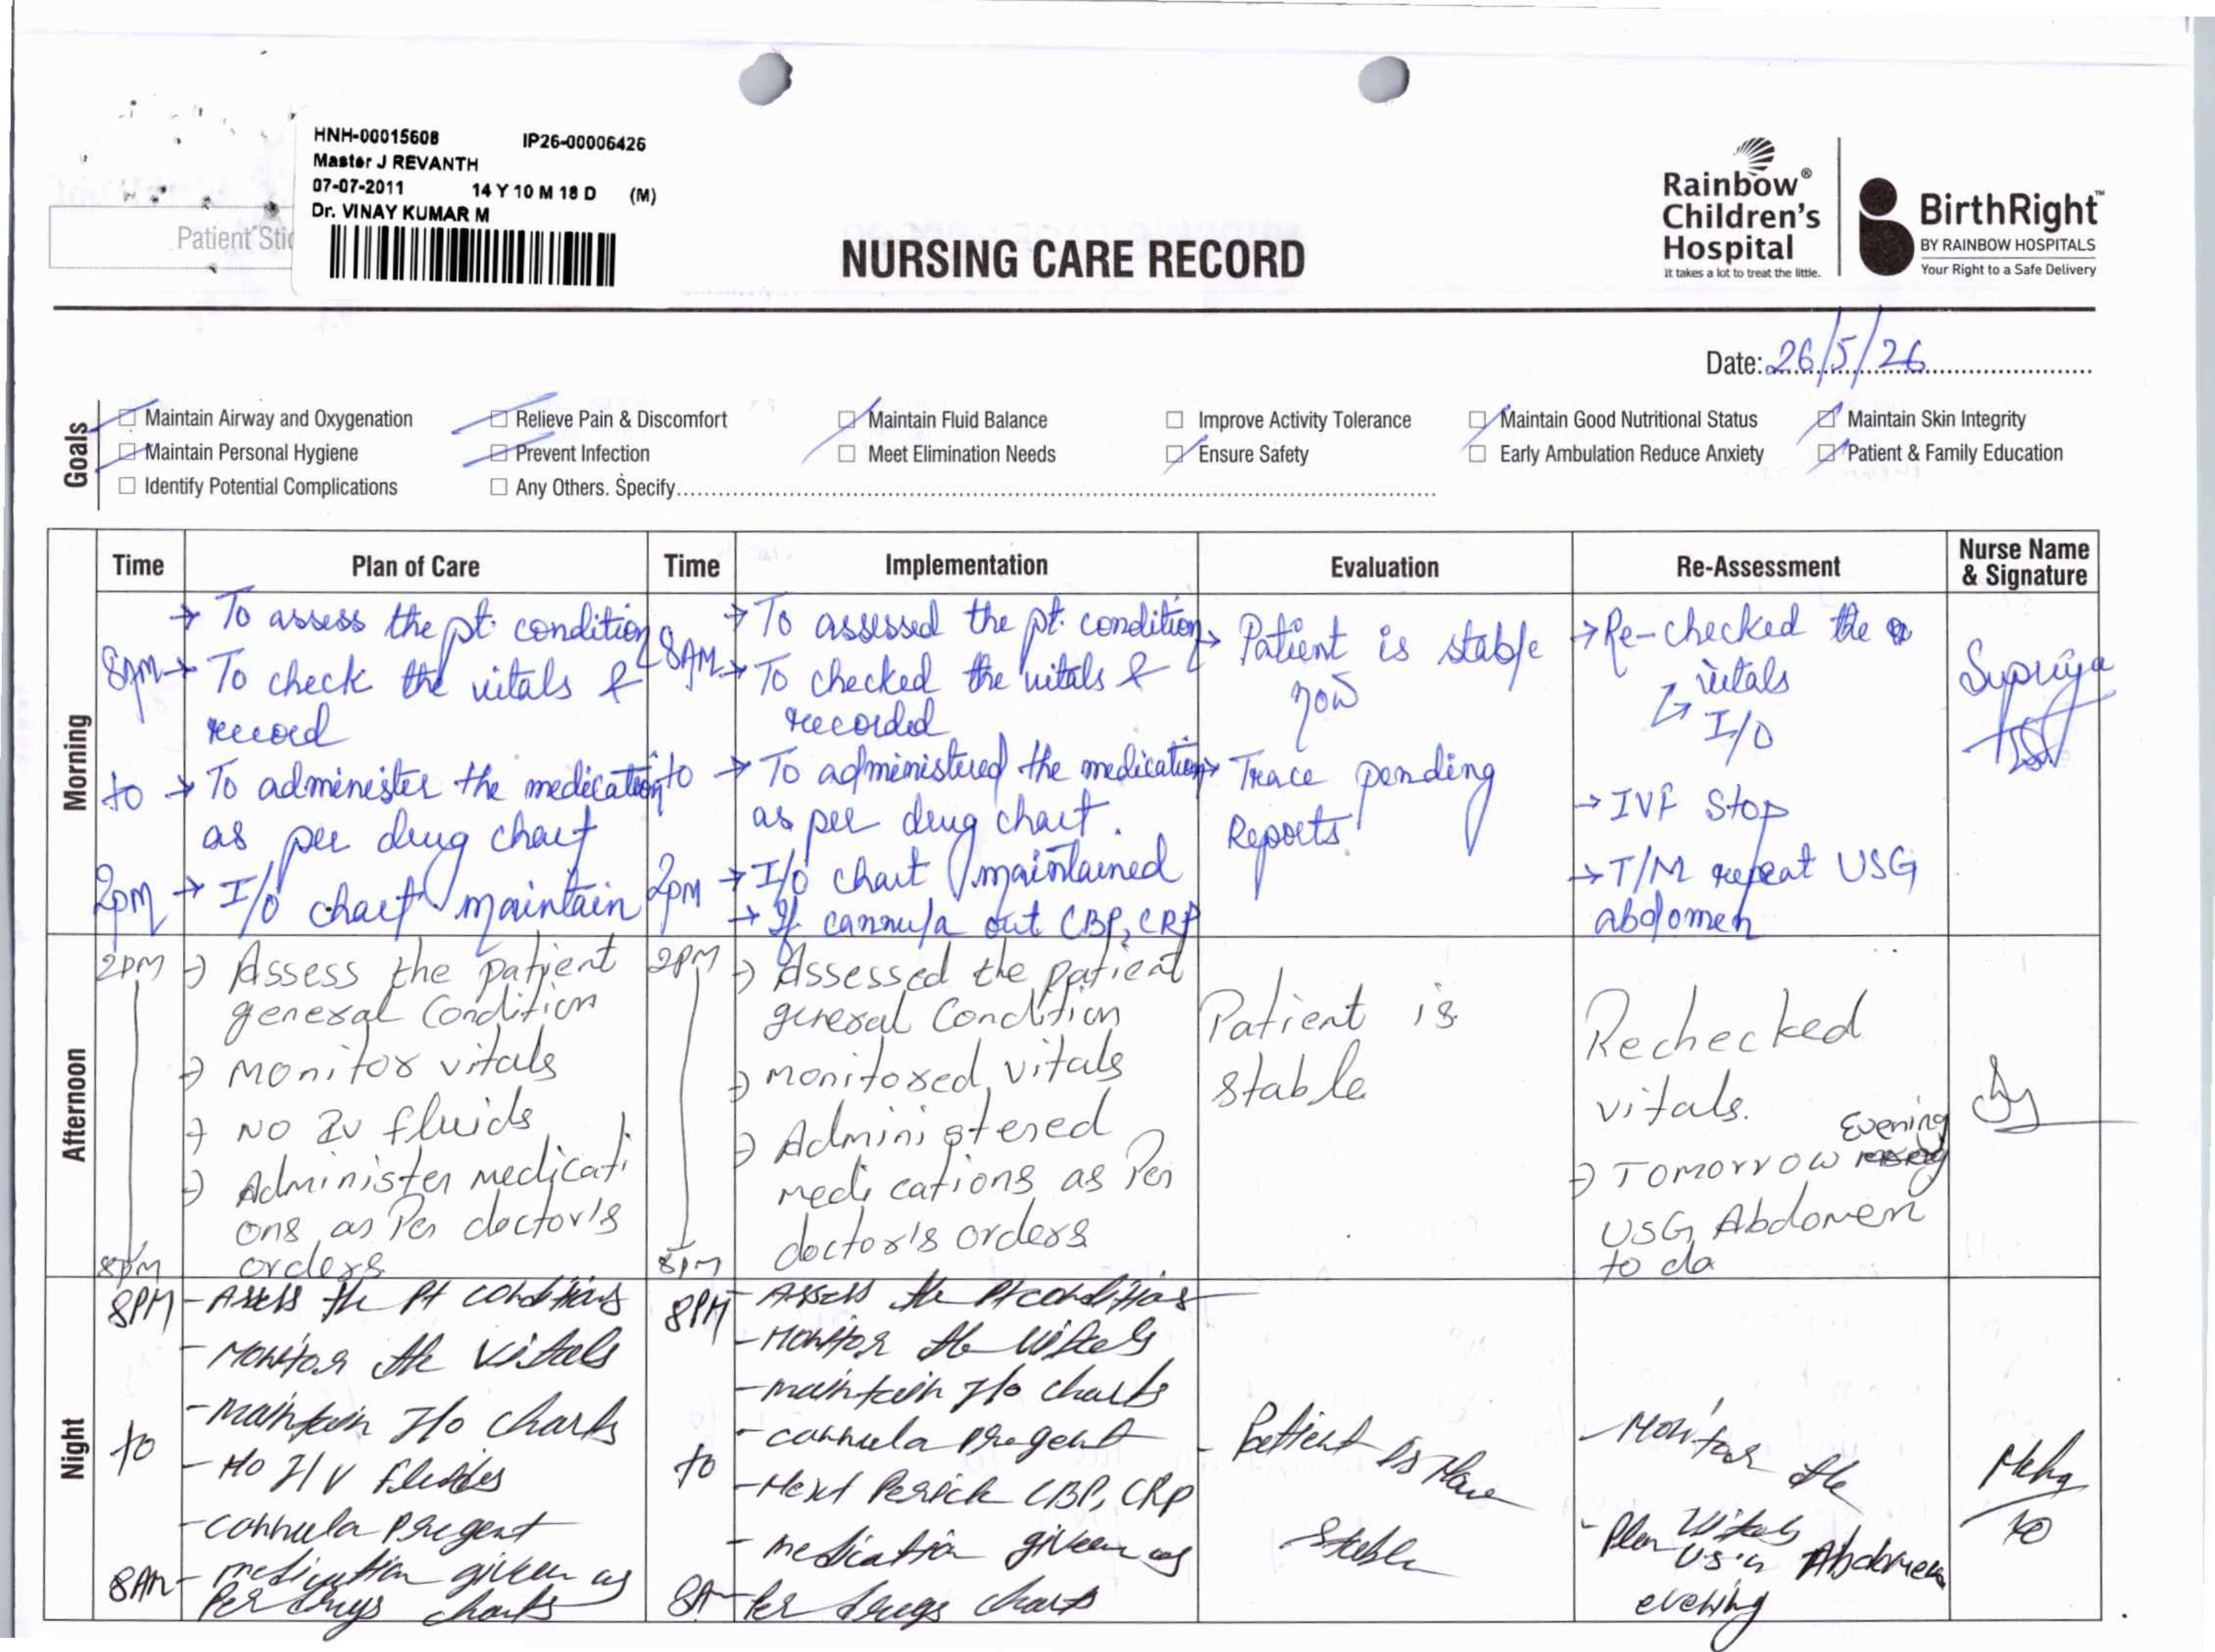 HNH-00015608 IP26-00006426
Master J REVANTH
07-07-2011 14 Y 10 M 18 D (M)
Dr. VINAY KUMAR M
Patient Sti
NURSING CARE RECORD
Rainbow®
Children's
Hospital
It takes a lot to treat the little.
BirthRight™
BY RAINBOW HOSPITALS
Your Right to a Safe Delivery
Date: 26/5/26
Goals
Maintain Airway and Oxygenation
Relieve Pain & Discomfort
Maintain Fluid Balance
Improve Activity Tolerance
Maintain Good Nutritional Status
Maintain Skin Integrity
Maintain Personal Hygiene
Prevent Infection
Meet Elimination Needs
Ensure Safety
Early Ambulation Reduce Anxiety
Patient & Family Education
Identify Potential Complications
Any Others. Specify
Time
Plan of Care
Time
Implementation
Evaluation
Re-Assessment
Nurse Name
& Signature
Morning
8AM
to
2pm
→ To assess the pt. condition
→ To check the vitals &
record
→ To administer the medication
as per drug chart
→ I/O chart maintain
8AM
to
2pm
→ To assessed the pt. condition
→ To checked the vitals &
recorded
→ To administered the medication
as per drug chart.
→ I/O chart maintained
→ If cannula out CBP, CRP
→ Patient is stable
now
→ Trace pending
Reports
→ Re-checked the
vitals
↳ I/O
→ IVF Stop
→ T/M repeat USG
abdomen
Supriya
Afternoon
2PM
8PM
→ Assess the patient
general Condition
→ Monitor vitals
→ NO IV fluids
→ Administer medicati
ons as Per doctor's
orders
2PM
8PM
→ Assessed the patient
general Condition
→ monitored vitals
→ Administered
medications as Per
doctor's orders
Patient is
stable
Rechecked
vitals.
Evening
→ TOMORROW
USG Abdomen
to do
Night
8PM
to
8AM
- Assess the Pt conditions
- Monitor the vitals
- maintain I/O charts
- No I/V fluides
- cannula present
- medication given as
Per drugs charts
8PM
to
8A
- Assess the Pt conditions
- Monitor the vitals
- maintain I/O charts
- cannula present
- Next Perick CBP, CRP
- medication given as
Per drugs charts
- Patient is
Stable
- Monitor the
vitals
- Plan USG Abdomen
evening